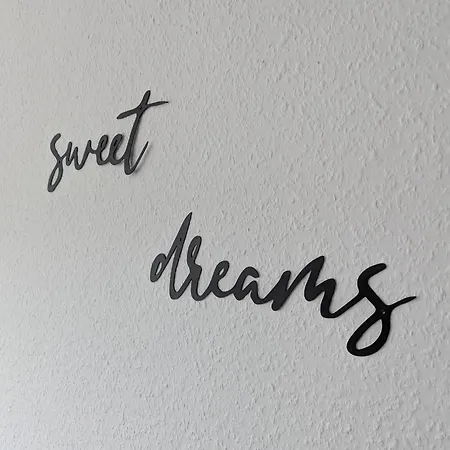 sweet
dreams